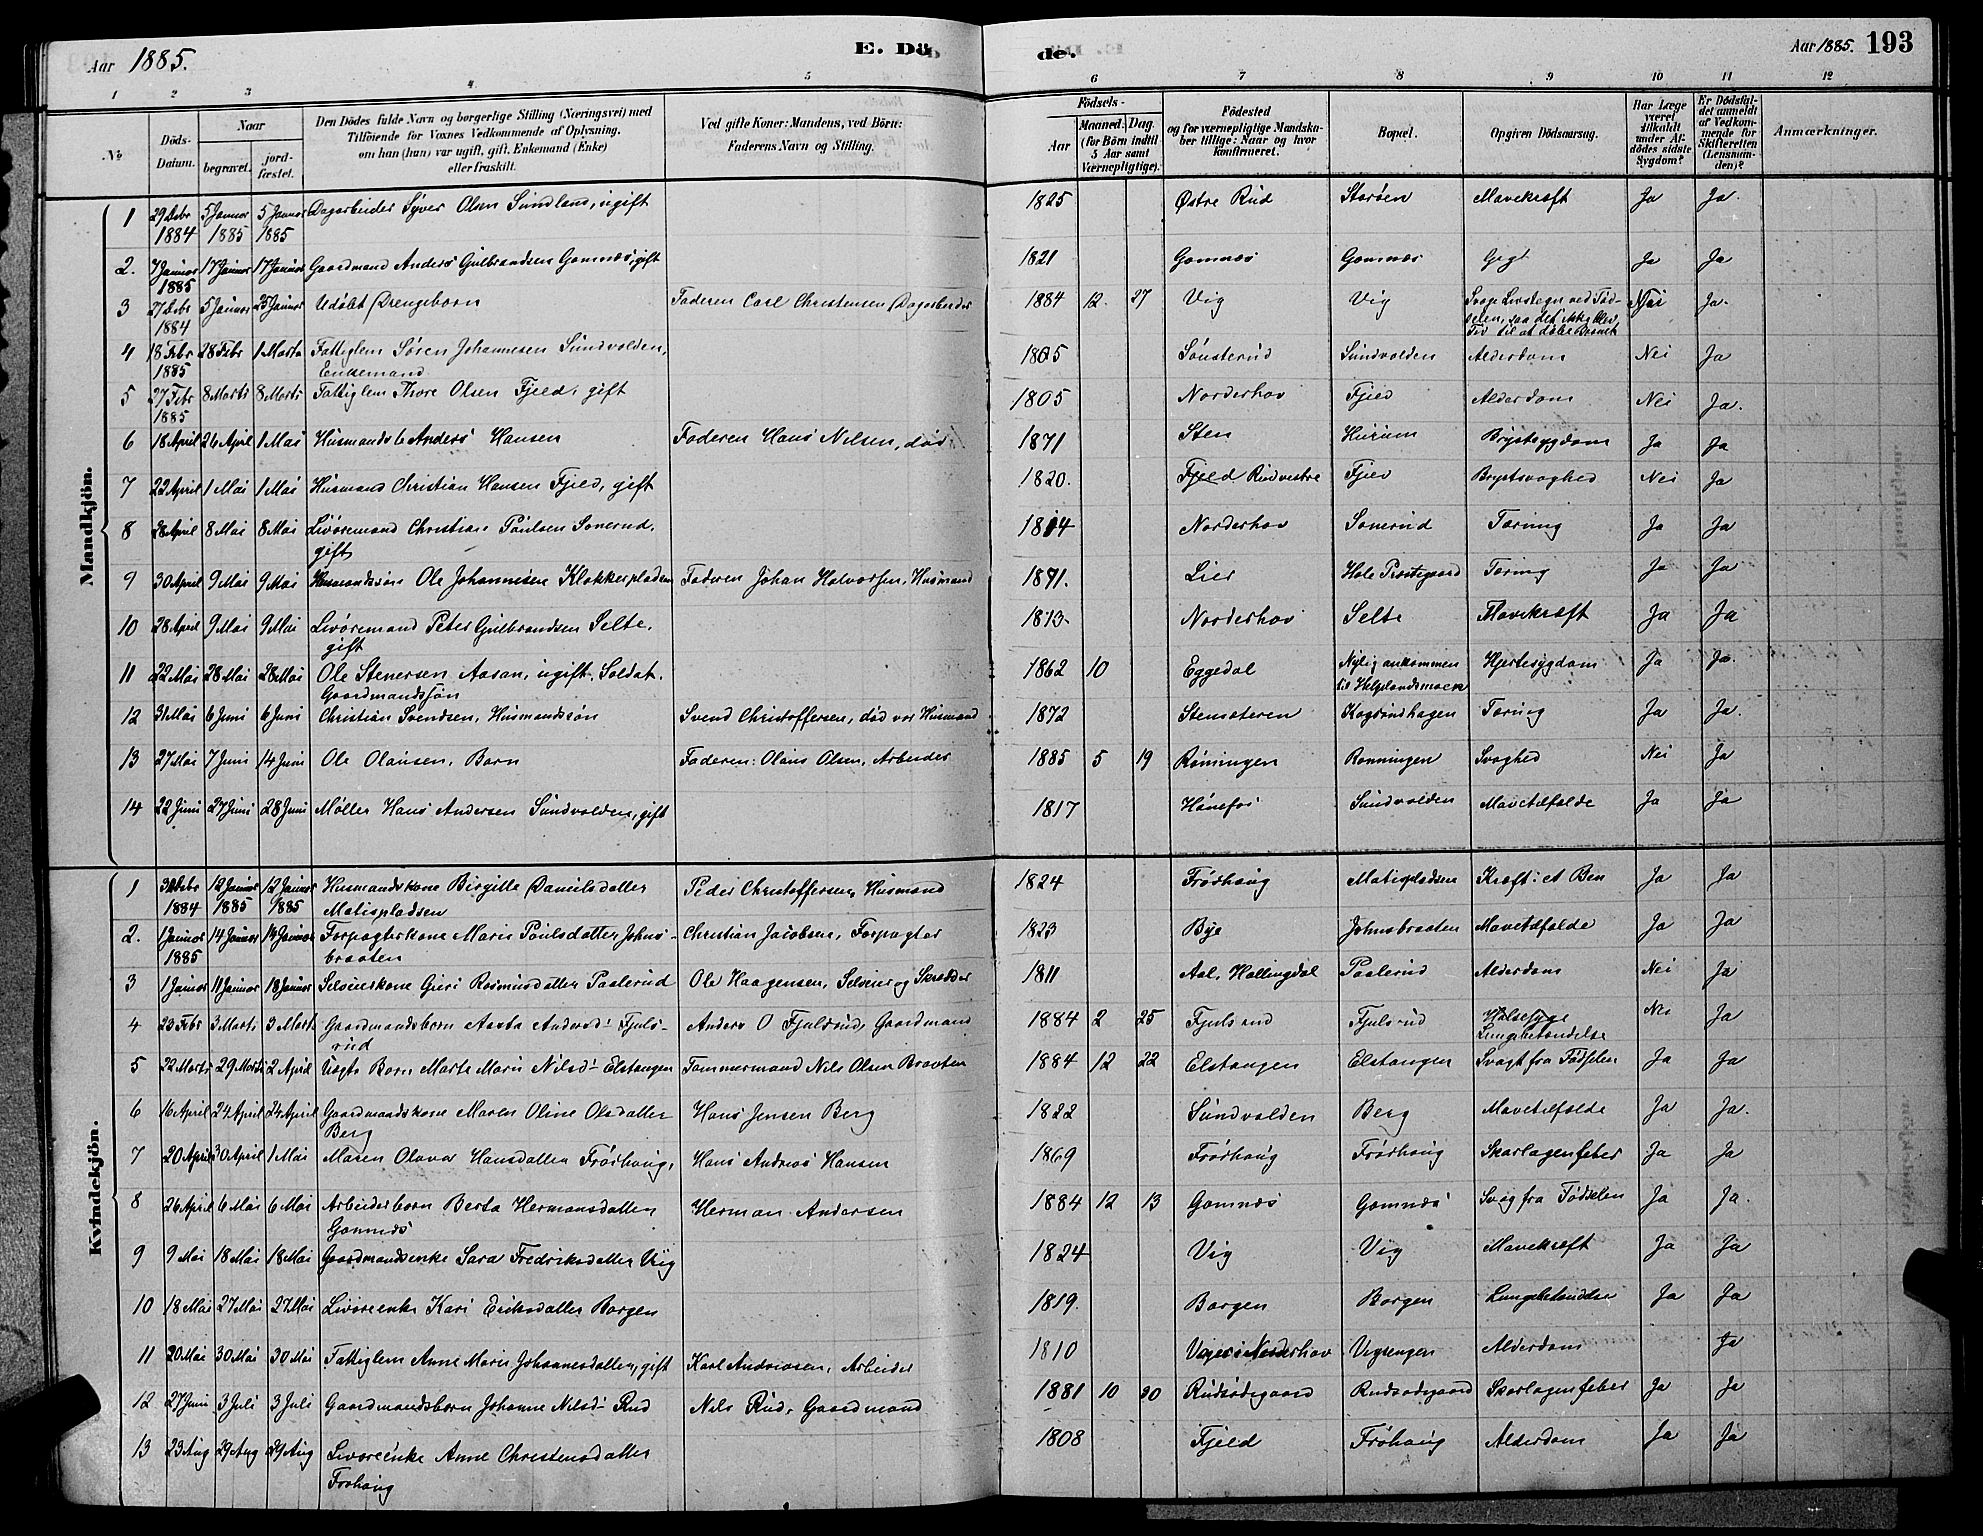 Aar 1885.
E. Dö
de.
Aar 1885. 193
1 2 3 4 5 6 7 8 9 10 11 12
No
Döds-Datum.
Naar
begravet.
jordfæstet.
Den Dödes fulde Navn og borgerlige Stilling (Næringsvei) med Tilföiende for Voxnes Vedkommende af Oplysning. om han (hun) var ugift, gift, Enkemand (Enke) eller fraskilt.
Ved gifte Koner: Mandens, ved Börn: Faderens Navn og Stilling.
Födsels-
Aar
Maaned. Dag.
(for Börn indtil 5 Aar samt Værnepligtige).
Födested og for værnepligtige Mandskaber tillige: Naar og hvor konfirmeret.
Bopæl.
Opgiven Dödsaarsag.
Har Læge været tilkaldt under Afdödes sidste Sygdom?
Er Dödsfaldet anmeldt af Vedkommende for Skifteretten (Lensmanden)?
Anmærkninger.
Mandkjön.
1 29 Debr 1884 5 Januar 1885 5 Januar 1885 Dagarbeider Syver Olsen Sundland, ugift 1825 Østre Rud Storøen Mavekræft Ja Ja.
2. 7 Januar 1885 17 Januar 17 Januar Gaardmand Anders Gulbrandsen Gomnæs, gift 1821 Gomnæs Gomnæs Gigt Ja Ja
3 27 Debr 1884 5 Januar 25 Januar Udøbt Drengebarn Faderen Carl Christensen Dagarbeider 1884 12. 27 Vig Vig Svage Livstegn ved Fødselen, saa det ikke blev Tid til at døbe Barnet Nei Ja.
4 18 Febr 1885 28 Febr 1 Marts Fattiglem Søren Johannesen Sundvolden, Enkemand 1805 Sønsterud Sundvolden Alderdom Nei Ja
5 27 Febr 1885 8 Marts 8 Marts Fattiglem Thore Olsen Fjeld, gift 1805 Norderhov Fjeld Alderdom Nei Ja.
6 18 April 26 April 1 Mai Husmands Anders Hansen Faderen Hans Nilsen, død 1871 Sten Hurum Brystsygdom Ja Ja
7 22 April 1 Mai 1 Mai Husmand Christian Hansen Fjeld, gift 1820. Fjeld Rudvestre Fjeld Brystsvaghed Nei Ja
8 28 April 8 Mai 8 Mai Livøremand Christian Poulsen Sonerud, gift 1814 Norderhov Sonerud Tæring Ja Ja
9 30 April 9 Mai 9 Mai Husmandssøn Ole Johannesen Klokkerpladsen Faderen Johan Halvorsen, Husmand 1871. Lier Hole Præstegaard Tæring Ja Ja
10 28 April 9 Mai 9 Mai Livøremand Peter Gulbrandsen Selte, gift 1813. Norderhov Selte Mavekræft Ja Ja
11 22 Mai 28 Mai 28 Mai Ole Stenersen Aasan, ugift, Soldat. Gaardmandssøn 1862 10 Eggedal Nylig ankommen til Helgelandsmoen Hjertesygdom Ja Ja.
12 31 Mai 6 Juni 6 Juni Christian Svendsen, Husmandssøn Svend Christoffersen, død var Husmand 1872 Stensteren Tæring Ja Ja.
13 27 Mai 7 Juni 14 Juni Ole Olausen, Barn Faderen: Olaus Olsen, Arbeider 1885 5 19 Rønningen Rønningen Svaghed Nei Ja
14 22 Juni 27 Juni 28 Juni Møller Hans Andersen Sundvolden, gift 1817 Hønefos Sundvolden Mavetilfælde Ja Ja
Kvindekjön.
1 Debr 1884 12 Januar 1885 12 Januar 1885 Husmandskone Birgitte Danielsdatter Matispladsen Peder Christoffersen, Husmand 1824 Frøshaug Matispladsen Kræft i et Ben Ja Ja
2. 1 Januar 1885 14 Januar 14 Januar Forpagterkone Marie Poulsdatter Johnsbraaten Christian Jacobsen, Forpagter 1823 Bye Johnsbraaten Mavetilfælde Ja Ja
3 1 Januar 11 Januar 18 Januar Selveierkone Guri Rasmusdatter Paalerud Ole Haagensen, Selveier og Skrædder 1811 Aal, Hallingdal Paalerud Alderdom Nei Ja
4 23 Febr 3 Marts 3 Marts Gaardmandsbarn Aasta Andersd- Fjulsrud Anders O Fjulsrud, Gaardmand 1884 2 25 Fjulsrud Fjulsrud Halssyge Lungebetændelse Nei Ja
5 22 Marts 29 Marts 2 April Uægte Barn Marte Marie Nilsd- Elstangen Tømmermand Nils Olsen Braaten 1884 12 22 Elstangen Elstangen Svagt fra Fødselen Ja Ja
6 16 April 24 April 24 April Gaardmandskone Maren Oline Olsdatter Berg Hans Jensen Berg 1822 Sundvolden Berg Mavetilfælde Ja Ja.
7 20 April 30 April 1 Mai Maren Olava Hansdatter Frøshaug, Hans Andreas Hansen 1869 Frøshaug Frøshaug Skarlagensfeber Ja Ja
8 26 April 6 Mai 6 Mai Arbeiderbarn Berta Hermansdatter Gomnæs Herman Andersen 1884 12 13 Gomnæs Gomnæs Svag fra Fødselen Ja Ja.
9 9 Mai 18 Mai 18 Mai Gaardmandsenke Sara Fredriksdatter Vig 1824 Vig Vig Mavekræft Ja Ja
10 18 Mai 27 Mai 27 Mai Livøreenke Kari Eriksdatter Borgen 1819. Borgen Borgen Lungebetændelse Ja Ja
11 20 Mai 30 Mai 30 Mai Fattiglem Anne Marie Johannesdatter, gift Karl Andreasen, Arbeider 1810 Norderhov Vigsengen Alderdom Ja
12 27 Juni 3 Juli 3 Juli Gaardmandsbarn Johanne Nilsd- Rud Nils Rud, Gaardmand 1881 10 20 Rudsødegaard Rudsødegaard Skarlagensfeber Ja Ja
13 23 Aug 29 Aug 29 Aug Livøreenke Anne Christensdatter Frøhaug 1808 Fjeld Frøhaug Alderdom Ja Ja